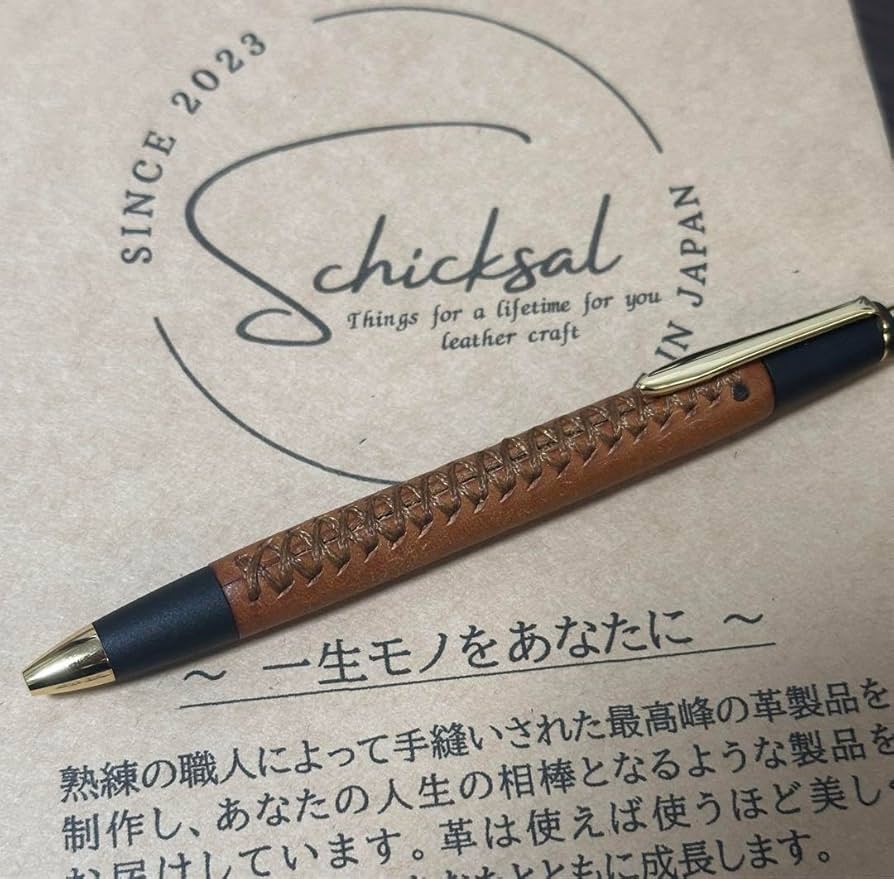 SINCE 2023
Schicksal
Things for a lifetime for you
leather craft
IN JAPAN
～ 一生モノをあなたに ～
熟練の職人によって手縫いされた最高峰の革製品を
制作し、あなたの人生の相棒となるような製品を
お届けしています。革は使えば使うほど美し
とともに成長します。